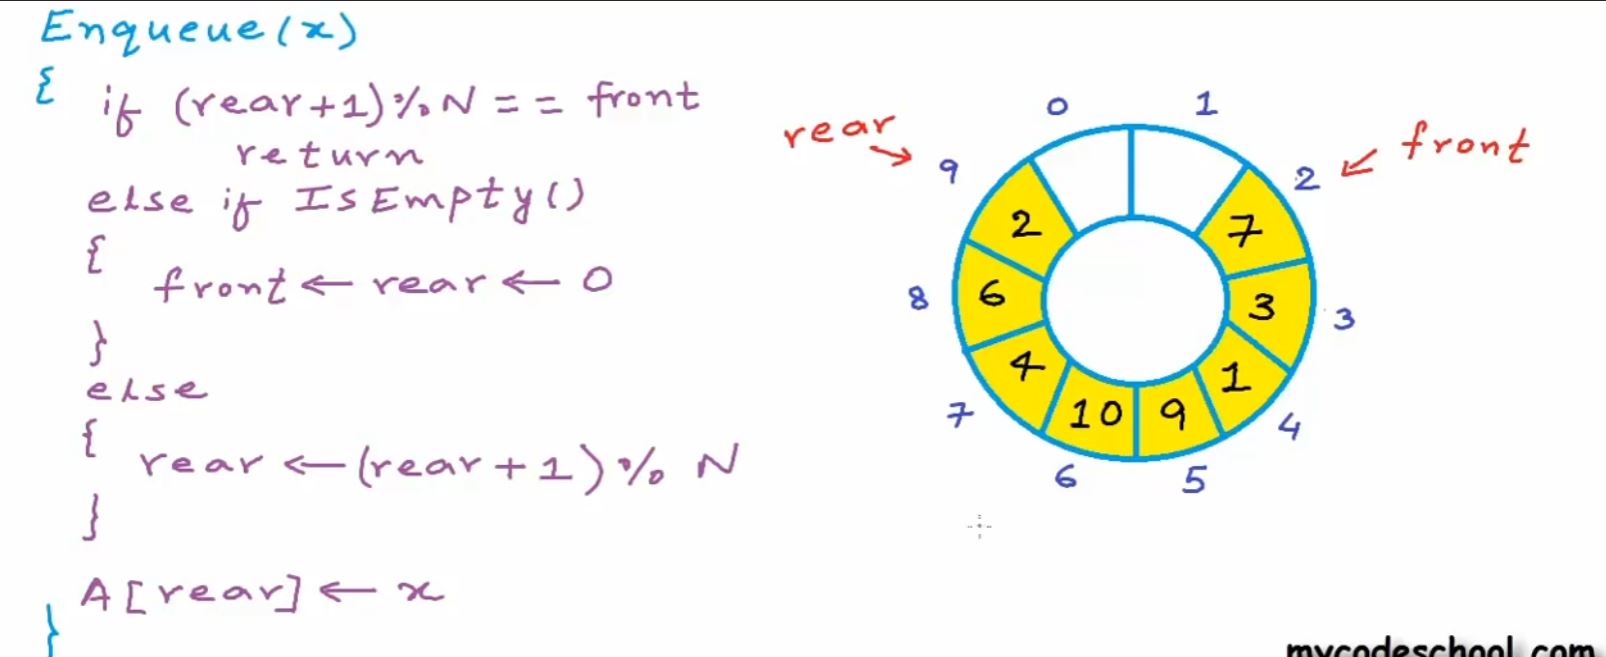 Enqueue(x)
{ if (rear+1)%N == front
return
else if IsEmpty()
{
front ← rear ← 0
}
else
{
rear ← (rear+1)% N
}
A[rear] ← x
}
0 1
rear → 9 2 ← front
2 7
8 6 3 3
4 1
7 10 9 4
6 5
mycodeschool.com